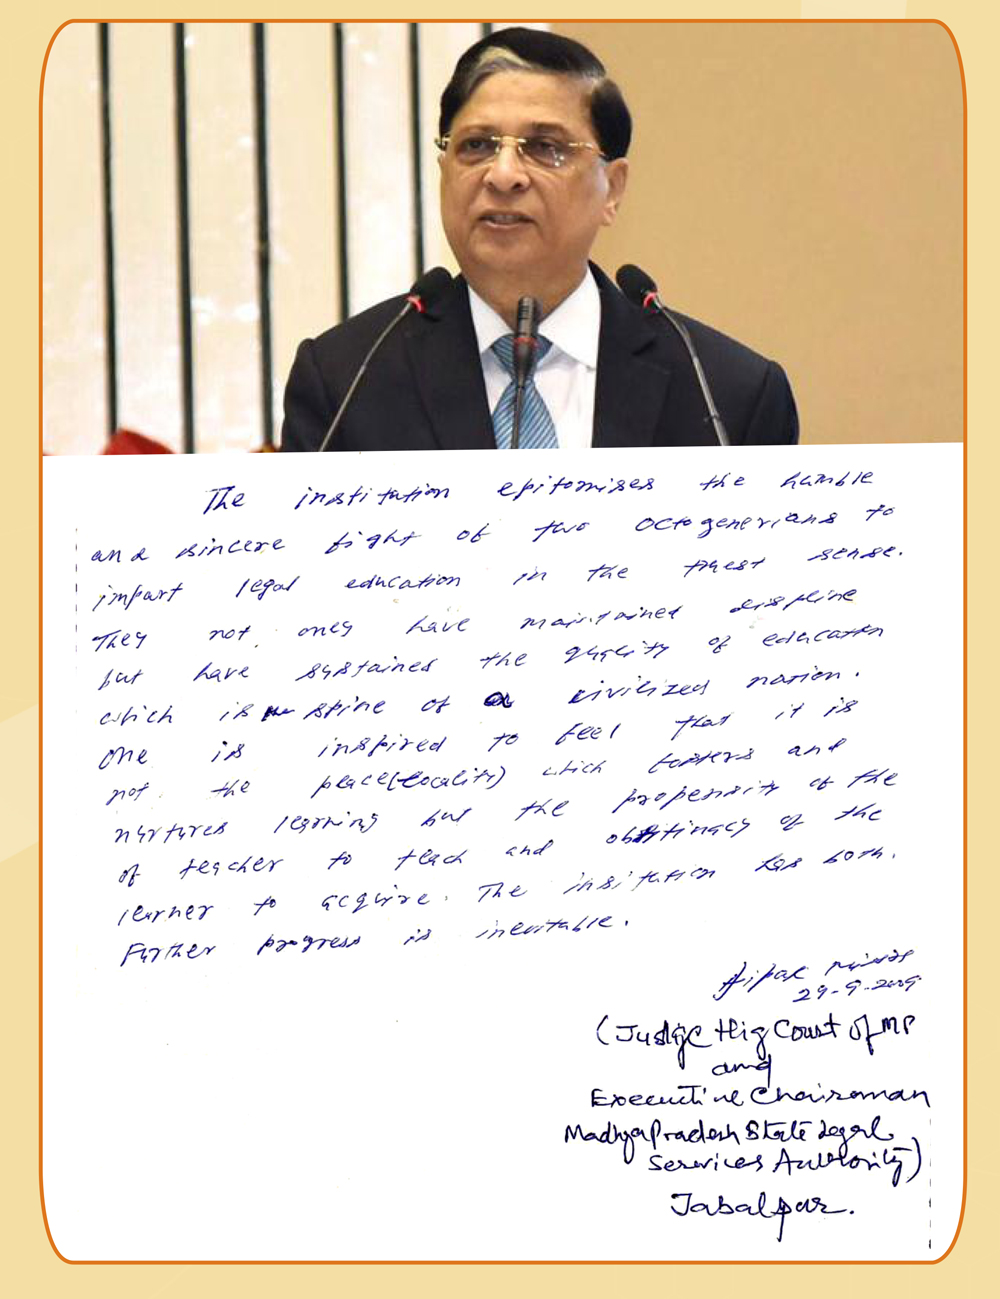 The institution epitomises the humble
and sincere fight of two octogenerians to
impart legal education in the truest sense.
They not only have maintained displine
but have sustained the quality of education
which is the spine of a civilized nation.
One is inspired to feel that it is
not the place(locality) which fosters and
nurtures learning but the propensity of the
of teacher to teach and obstinacy of the
learner to acquire. The insitution has both.
Further progress is inevitable.
Dipak Misra
29-9-2009
(Judge Hig Court of MP
and
Executive Chairaman
Madhya Pradesh State Legal
Services Authority)
Jabalpur.